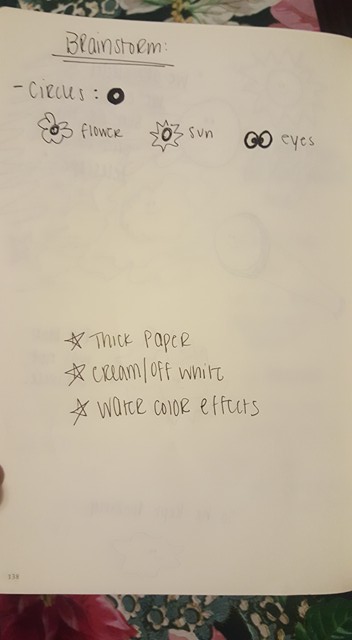 Brainstorm:
- Circles:
flower sun eyes
Thick paper
cream/off white
water color effects